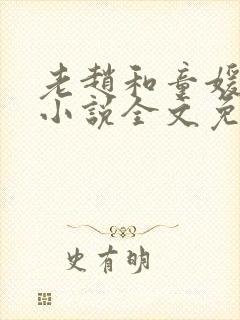 老趙和童媛
小說全文免
史有明